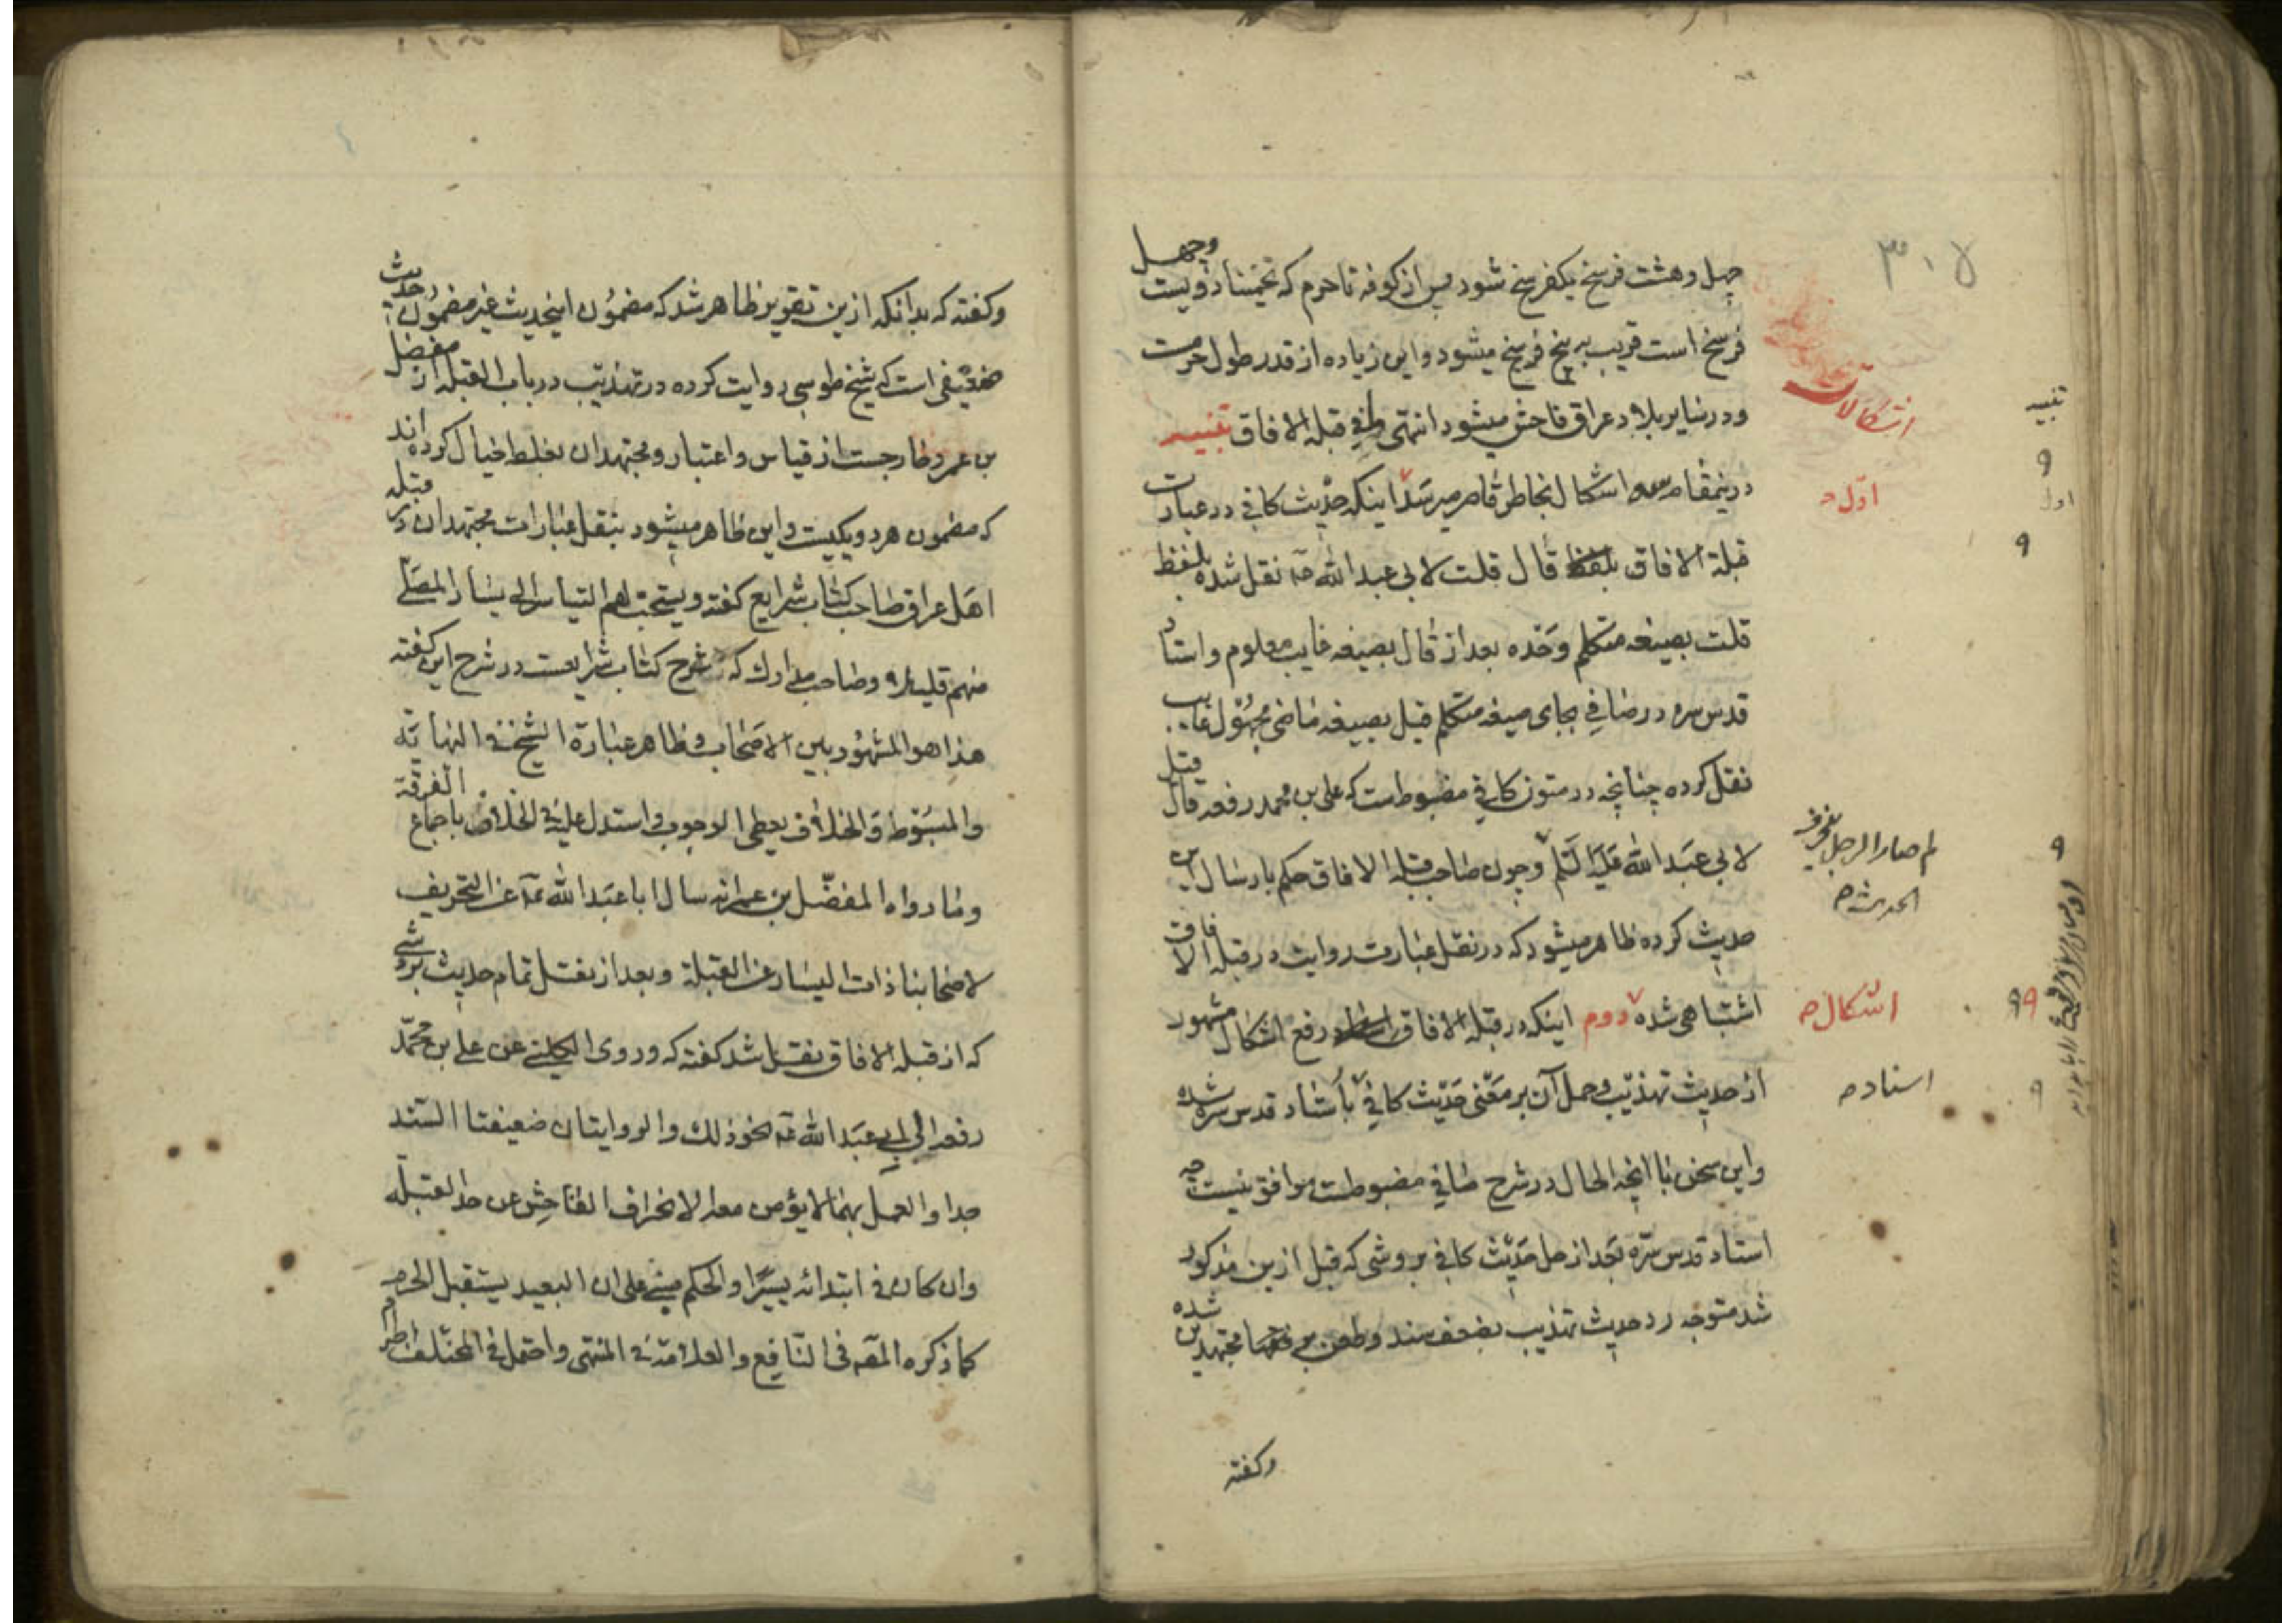 ۳۰۸
چهل و هشت فرسخ یکفرسخ شود پس از کوفه تا حرم که تخمینا دویست و چهل
فرسخ است قریب به پنج فرسخ میشود و این زیاده از قدر طول حرمست
و در سایر بلاد عراق فاحش میشود انتهی ما فی قبلة الافاق تنبیه
درینمقام اشکال بخاطر قاصر میرسد اینکه حدیث کافی در عبارت
قبلة الافاق بلفظ قال قلت لابی عبد الله عه نقل شده بلفظ
قلت بصیغه متکلم وحده بعد از قال بصیغه غایب معلوم و استاد
قدس سره در صافی بجای صیغه متکلم قیل بصیغه ماضی مجهول غایب
نقل کرده چنانچه در متون کافی مضبوطست که علی بن محمد رفعه قال قیل
لابی عبد الله علیه السلم و چون صاحب قبله الافاق حکم بارسال این
حدیث کرده ظاهر میشود که در نقل عبارت روایت در قبله الافاق
اشتباهی شده دوم اینکه در قبله الافاق رفع اشکال مشهور
از حدیث تهذیب و حمل آن بر معنی حدیث کافی باستاد قدس سره شده
و این سخن با آنچه الحال در شرح صافی مضبوطست موافق نیست چه
استاد قدس سره بعد از حل حدیث کافی بروشی که قبل ازین مذکور
شد متوجه رد حدیث تهذیب بضعف سند و طعن بر فقها مجتهدین شده
وکفته
اشکالات
اول
لم صار الرجل ینحرف
الحدیث
اشکال
اسناد
تنبیه
اول
وکفته که بدانکه ازین تقریر ظاهر شد که مضمون اینحدیث غیر مضمون حدیث
ضعیفی است که شیخ طوسی روایت کرده در تهذیب در باب القبله از مفضل
بن عمر و خارجست از قیاس و اعتبار و مجتهدان بغلط خیال کرده اند
که مضمون هر دو یکیست و این ظاهر میشود بنقل عبارات مجتهدان در قبله
اهل عراق صاحب کتاب شرایع کفته ویستحب لهم التیاسر الی یسار المصلی
منهم قلیلا و صاحب مدارک که شرح کتاب شرایعست در شرح این کفته
هذا هو المشهور بین الاصحاب و ظاهر عبارة الشیخ فی النهایة
والمبسوط والخلاف یعطی الوجوب واستدل علیه فی الخلاف باجماع الفرقة
وما رواه المفضل بن عمر انه سال ابا عبد الله عه عن التحریف
لاصحابنا ذات الیسار عن القبلة و بعد از نقل تمام حدیث بروشی
که از قبله الافاق نقل شد کفته که وروی الکلینی عن علی بن محمد
رفعه الی ابی عبد الله عه نحو ذلک والروایتان ضعیفتا السند
جدا والعمل بهما لا یؤمن معه الانحراف الفاحش عن حد القبله
وان کان فی ابتدائه یسیرا والحکم مبنی علی ان البعید یستقبل الحرم
کما ذکره المصه فی النافع والعلامة فی المنتهی واحتمل فی المختلف